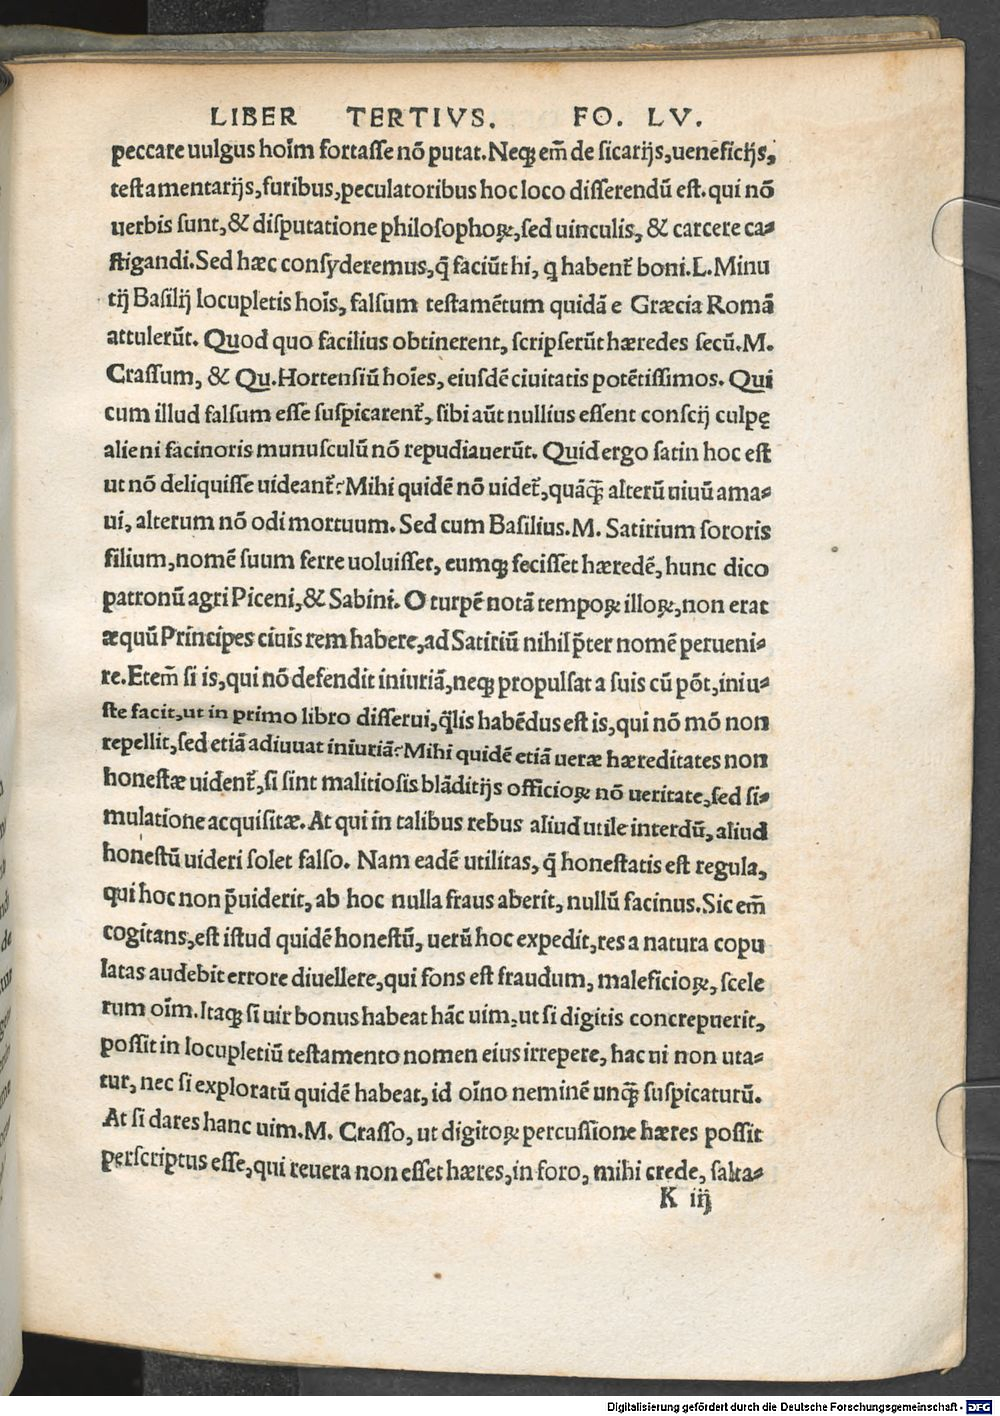 LIBER TERTIVS. FO. LV.
peccare uulgus hoīm fortasse nō putat. Neqꝫ em̄ de sicarijs, ueneficijs,
testamentarijs, furibus, peculatoribus hoc loco disserendū est. qui nō
uerbis sunt, & disputatione philosophoꝝ, sed uinculis, & carcere ca⸗
stigandi. Sed hæc consyderemus, q̄ faciūt hi, q habent᷑ boni. L. Minu
tij Basilij locupletis hoīs, falsum testamētum quidā e Græcia Romā
attulerūt. Quod quo facilius obtinerent, scripserūt hæredes secū. M.
Crassum, & Qu. Hortensiū hoīes, eiusdē ciuitatis potētissimos. Qui
cum illud falsum esse suspicarent᷑, sibi aūt nullius essent conscij culpę
alieni facinoris munusculū nō repudiauerūt. Quid ergo satin hoc est
ut nō deliquisse uideant᷑? Mihi quidē nō uidet᷑, quāq̄ꝫ alterū uiuū ama⸗
ui, alterum nō odi mortuum. Sed cum Basilius. M. Satirium sororis
filium, nomē suum ferre uoluisset, eumqꝫ fecisset hæredē, hunc dico
patronū agri Piceni, & Sabini. O turpē notā tempoꝝ illoꝝ, non erat
æquū Principes ciuis rem habere, ad Satiriū nihil p̄ter nomē perueni⸗
re. Etem̄ si is, qui nō defendit iniuriā, neqꝫ propulsat a suis cū pōt, iniu⸗
ste facit, ut in primo libro disserui, q̄lis habēdus est is, qui nō mō non
repellit, sed etiā adiuuat iniuriā? Mihi quidē etiā ueræ hæreditates non
honestæ uident᷑, si sint malitiosis blāditijs officioꝝ nō ueritate, sed si⸗
mulatione acquisitæ. At qui in talibus rebus aliud utile interdū, aliud
honestū uideri solet falso. Nam eadē utilitas, q̄ honestatis est regula,
qui hoc non p̄uiderit, ab hoc nulla fraus aberit, nullū facinus. Sic em̄
cogitans, est istud quidē honestū, uerū hoc expedit, res a natura copu
latas audebit errore diuellere, qui fons est fraudum, maleficioꝝ, scele
rum oīm. Itaqꝫ si uir bonus habeat hāc uim, ut si digitis concrepuerit,
possit in locupletiū testamento nomen eius irrepere, hac ui non uta⸗
tur, nec si exploratū quidē habeat, id oīno neminē unq̄ꝫ suspicaturū.
At si dares hanc uim. M. Crasso, ut digitoꝝ percussione hæres possit
perscriptus esse, qui reuera non esset hæres, in foro, mihi crede, salta⸗
K iij
Digitalisierung gefördert durch die Deutsche Forschungsgemeinschaft - DFG